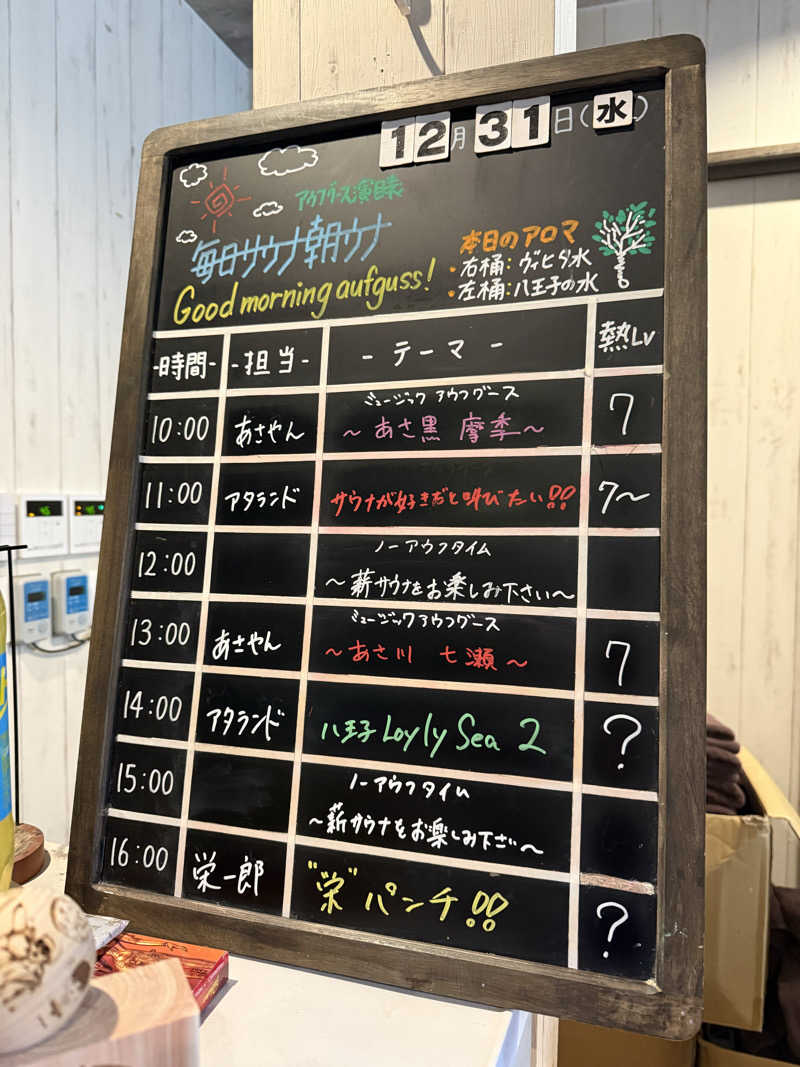 12月31日(水)
アウフグース演目表
毎日サウナ朝ウナ
Good morning aufguss!
本日のアロマ
・右桶：ヴィヒタ水
・左桶：八王子の水
-時間- -担当- -テーマ- 熱Lv
10:00 あさやん ミュージックアウフグース 7
～あさ黒 摩季～
11:00 アタランド サウナが好きだと叫びたい!! 7～
12:00 ノーアウフタイム
～薪サウナをお楽しみ下さい～
13:00 あさやん ミュージックアウフグース 7
～あさ川 七瀬～
14:00 アタランド 八王子 Loyly Sea 2 ?
15:00 ノーアウフタイム
～薪サウナをお楽しみ下さい～
16:00 栄一郎 "栄"パンチ!! ?